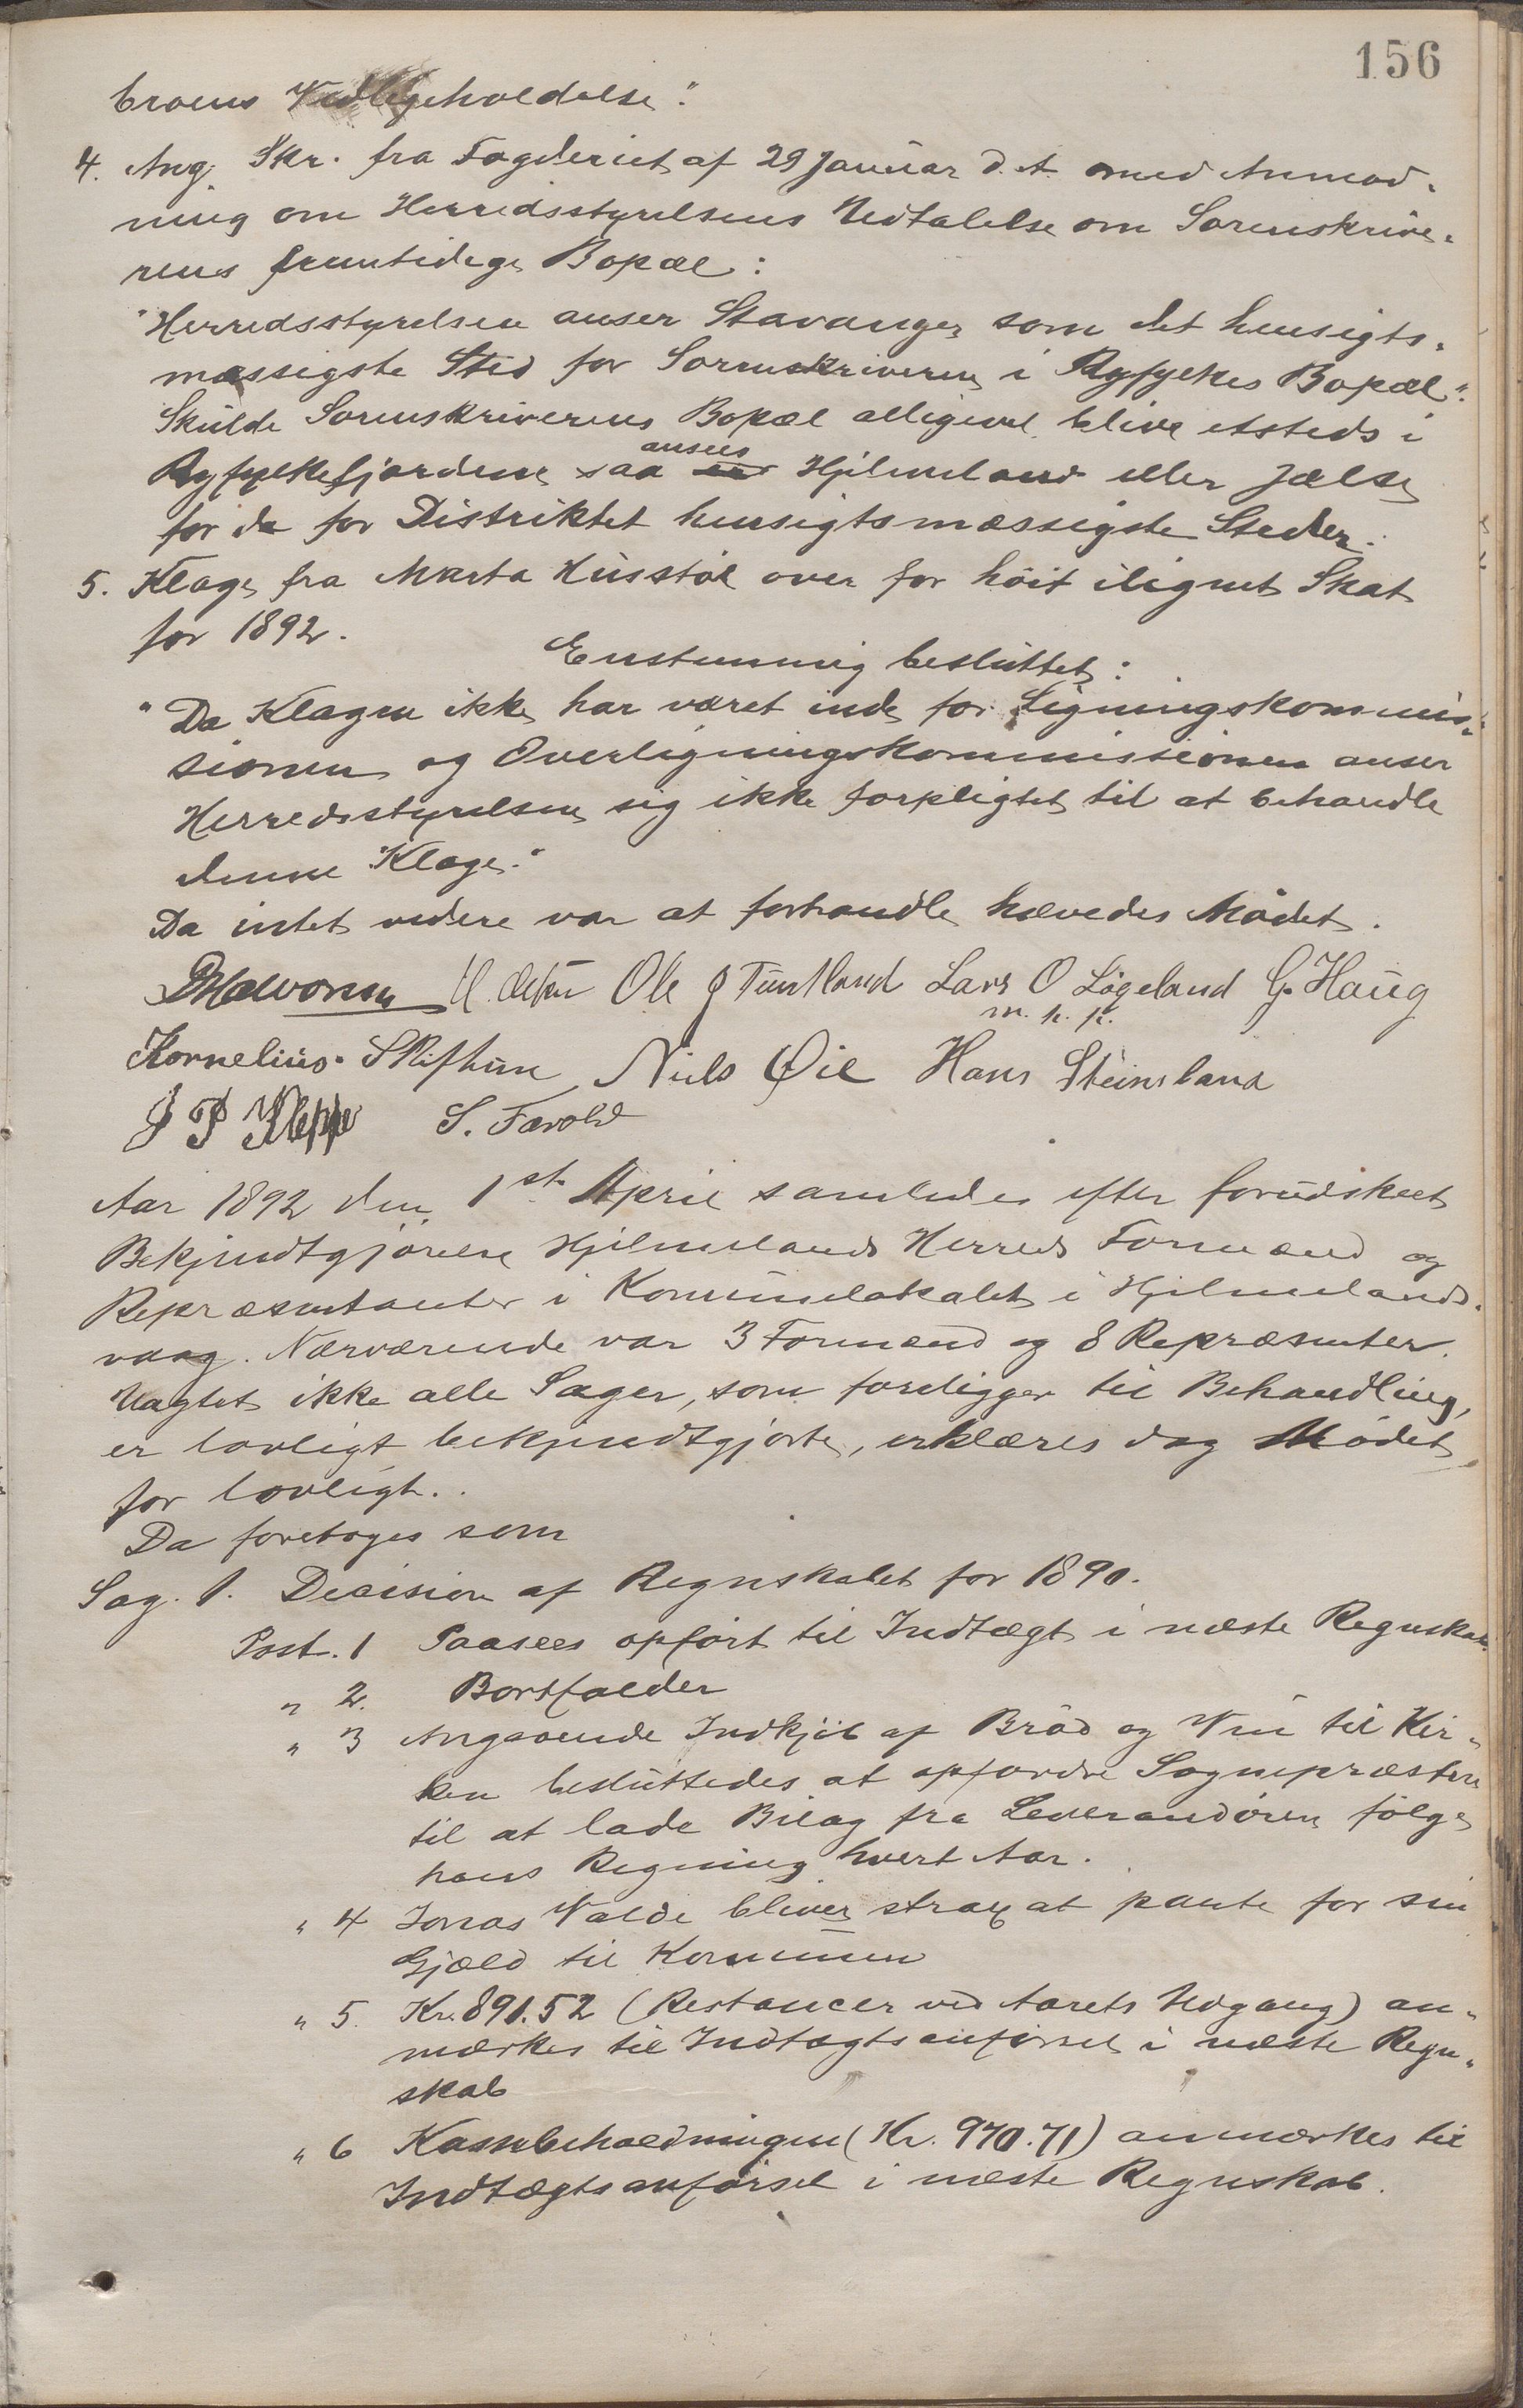 156
broens Vedligeholdelse".
4. Ang. Skr. fra Fogderiet af 29 Januar d. A. med Anmod-
ning om Herredsstyrelsens Udtalelse om Sorenskrive-
rens fremtidige Bopæl:
"Herredsstyrelsen anser Stavanger som det hensigts-
mæssigste Sted for Sorenskriveren i Ryfylkes Bopæl".
Skulde Sorenskriverens Bopæl alligevel blive etsteds i
Ryfylkefjordene saa ansees Hjelmeland eller Jælse
for de for Distriktet hensigtsmæssigste Steder.
5. Klage fra Marta Husstøl over for høit ilignet Skat
for 1892.
Enstemmig besluttet:
"Da Klagen ikke har været inde for Ligningskommis-
sionen og Overligningskommissionen anser
Herredsstyrelsen sig ikke forpligtet til at behandle
denne Klage."
Da intet videre var at forhandle hævedes Mødet.
Ole J Tuntland Lars O Løgeland G. Haug
m. p. p.
Kornelius Skiftun, Niels Øie Hans Steinsland
J P Kleppe S. Farold
Aar 1892 den 1st April samledes efter forudskeet
Bekjendtgjørelse Hjelmelands Herreds Formænd og
Repræsentanter i Kommunelokalet i Hjelmelands-
vaag. Nærværende var 3 Formænd og 8 Repræsenter.
Uagtet ikke alle Sager, som foreligger til Behandling,
er lovligt bekjendtgjorte, erklæres dog Mødet
for lovligt.
Da foretoges som
Sag. 1. Decision af Regnskabet for 1890.
Post. 1 Paasees opført til Indtægt i næste Regnskab.
" 2. Bortfalder
" 3 Angaaende Indkjøb af Brød og Vin til Kir-
ken besluttedes at opfordre Sognepræsten
til at lade Bilag fra Leverandøren følge
hans Regning hvert Aar.
" 4 Jonas Valde bliver strax at pante for sin
Gjæld til Kommunen
" 5. Kr. 891.52 (Restancer ved Aarets Udgang) an-
mærkes til Indtægtsanførsel i næste Regn-
skab
" 6 Kassebeholdningen (Kr. 970.71) anmærkes til
Indtægtsanførsel i næste Regnskab.